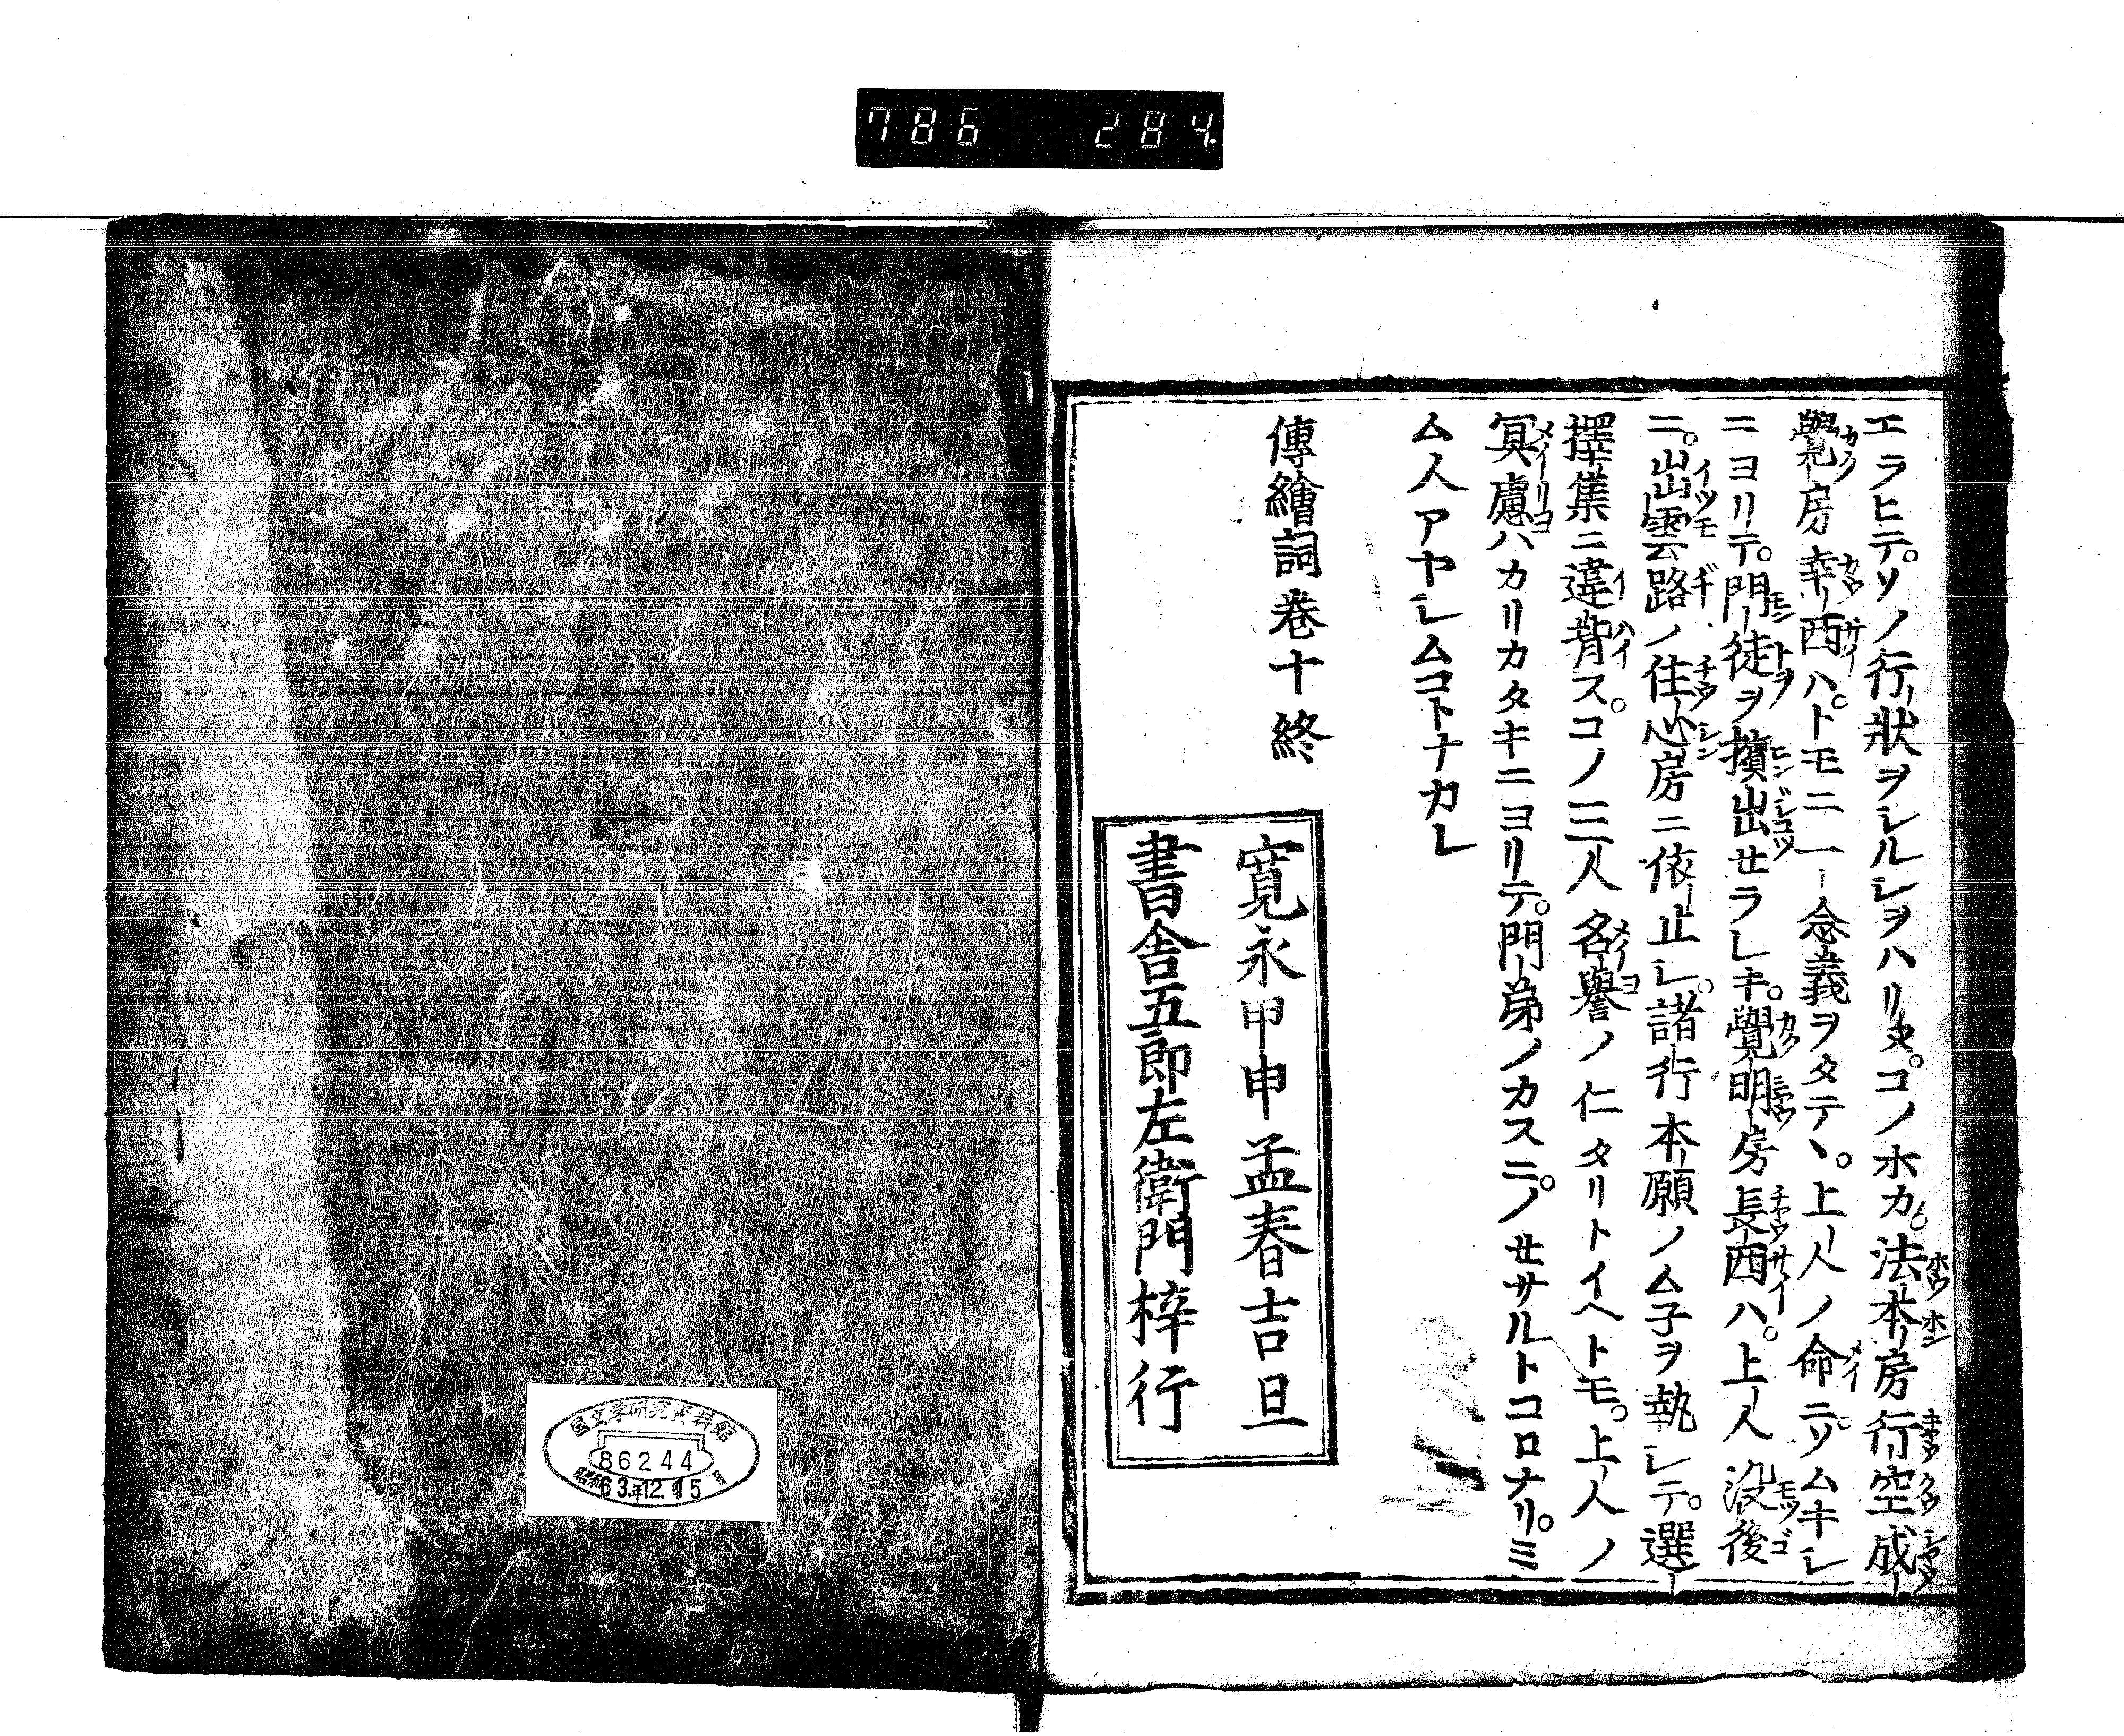 786 284
エラヒテ。ソノ行狀ヲシルシヲハリヌ。コノホカ。法本房行空成
覺房幸西ハ。トモニ一念義ヲタテヽ。上人ノ命ニソムキシ
ニヨリテ。門徒ヲ擯出セラレキ。覺明房長西ハ。上人没後
ニ。出雲路ノ住心房ニ依止シ。諸行本願ノムネヲ執シテ。選
擇集ニ違背ス。コノ三人名譽ノ仁タリトイヘトモ。上人ノ
冥慮ハカリカタキニヨリテ。門弟ノカスニノセサルトコロナリ。ミ
ム人アヤシムコトナカレ
傳繪詞卷十終
寛永甲申孟春吉旦
書舎五郎左衛門梓行
國文学研究資料館
86244
昭和63年12月15日